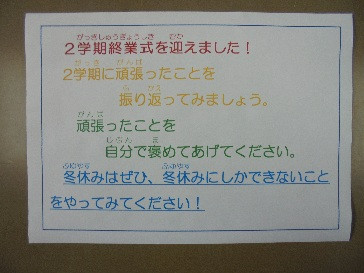 ２学期終業式を迎えました！
２学期に頑張ったことを
振り返ってみましょう。
頑張ったことを
自分で褒めてあげてください。
冬休みはぜひ、冬休みにしかできないこと
をやってみてください！